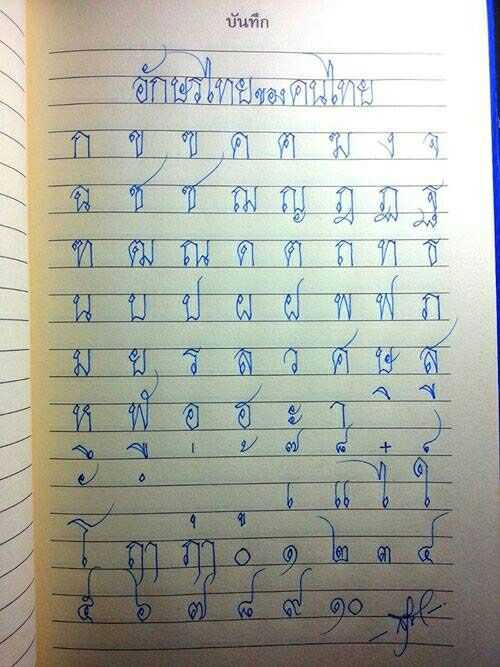 บันทึก
อักษรไทยของคนไทย
ก ข ฃ ค ฅ ฆ ง จ
ฉ ช ซ ฌ ญ ฎ ฏ ฐ
ฑ ฒ ณ ด ต ถ ท ธ
น บ ป ผ ฝ พ ฟ ภ
ม ย ร ล ว ศ ษ ส
ห ฬ อ ฮ ะ า ิ ี
ึ ื ่ ้ ๊ ็ ๋ ์
ั ํ ุ ู เ แ ไ ใ
โ ฤๅ ฦๅ ๐ ๑ ๒ ๓ ๔
๕ ๖ ๗ ๘ ๙ ๑๐